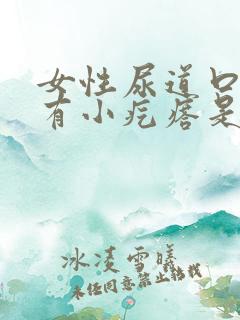 女性尿道口
有小疙瘩是
冰凌雪曦
未经同意禁止转载